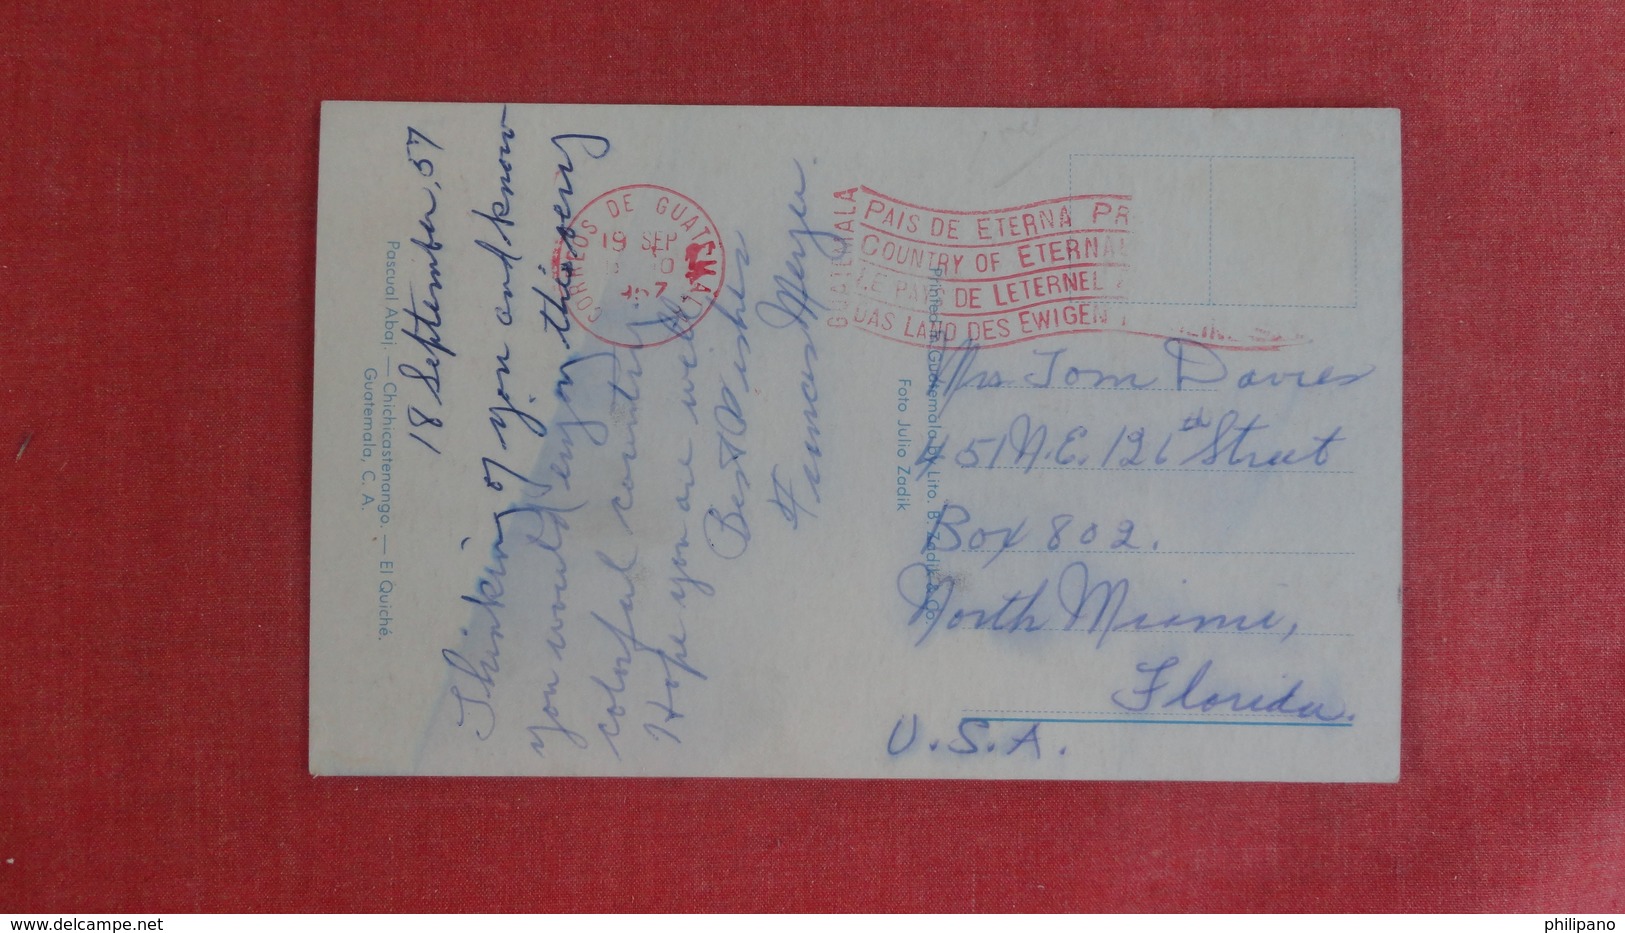 18 September, 57
Thinking of you and know
you would enjoy this very
colorful country
Hope you are well
Best Wishes
Pascual Abaj. — Chichicastenango. — El Quiché.
Guatemala, C. A.
CORREOS DE GUATEMALA
19 SEP
GUATEMALA
PAIS DE ETERNA PR
COUNTRY OF ETERNAL
LE PAYS DE LETERNEL
DAS LAND DES EWIGEN
Printed in Guatemala by Lito. B. Zadik & Co.
Foto Julio Zadik
Mrs Tom Davies
451 N.E. 126th Street
Box 802.
North Miami,
Florida.
U.S.A.
philipano